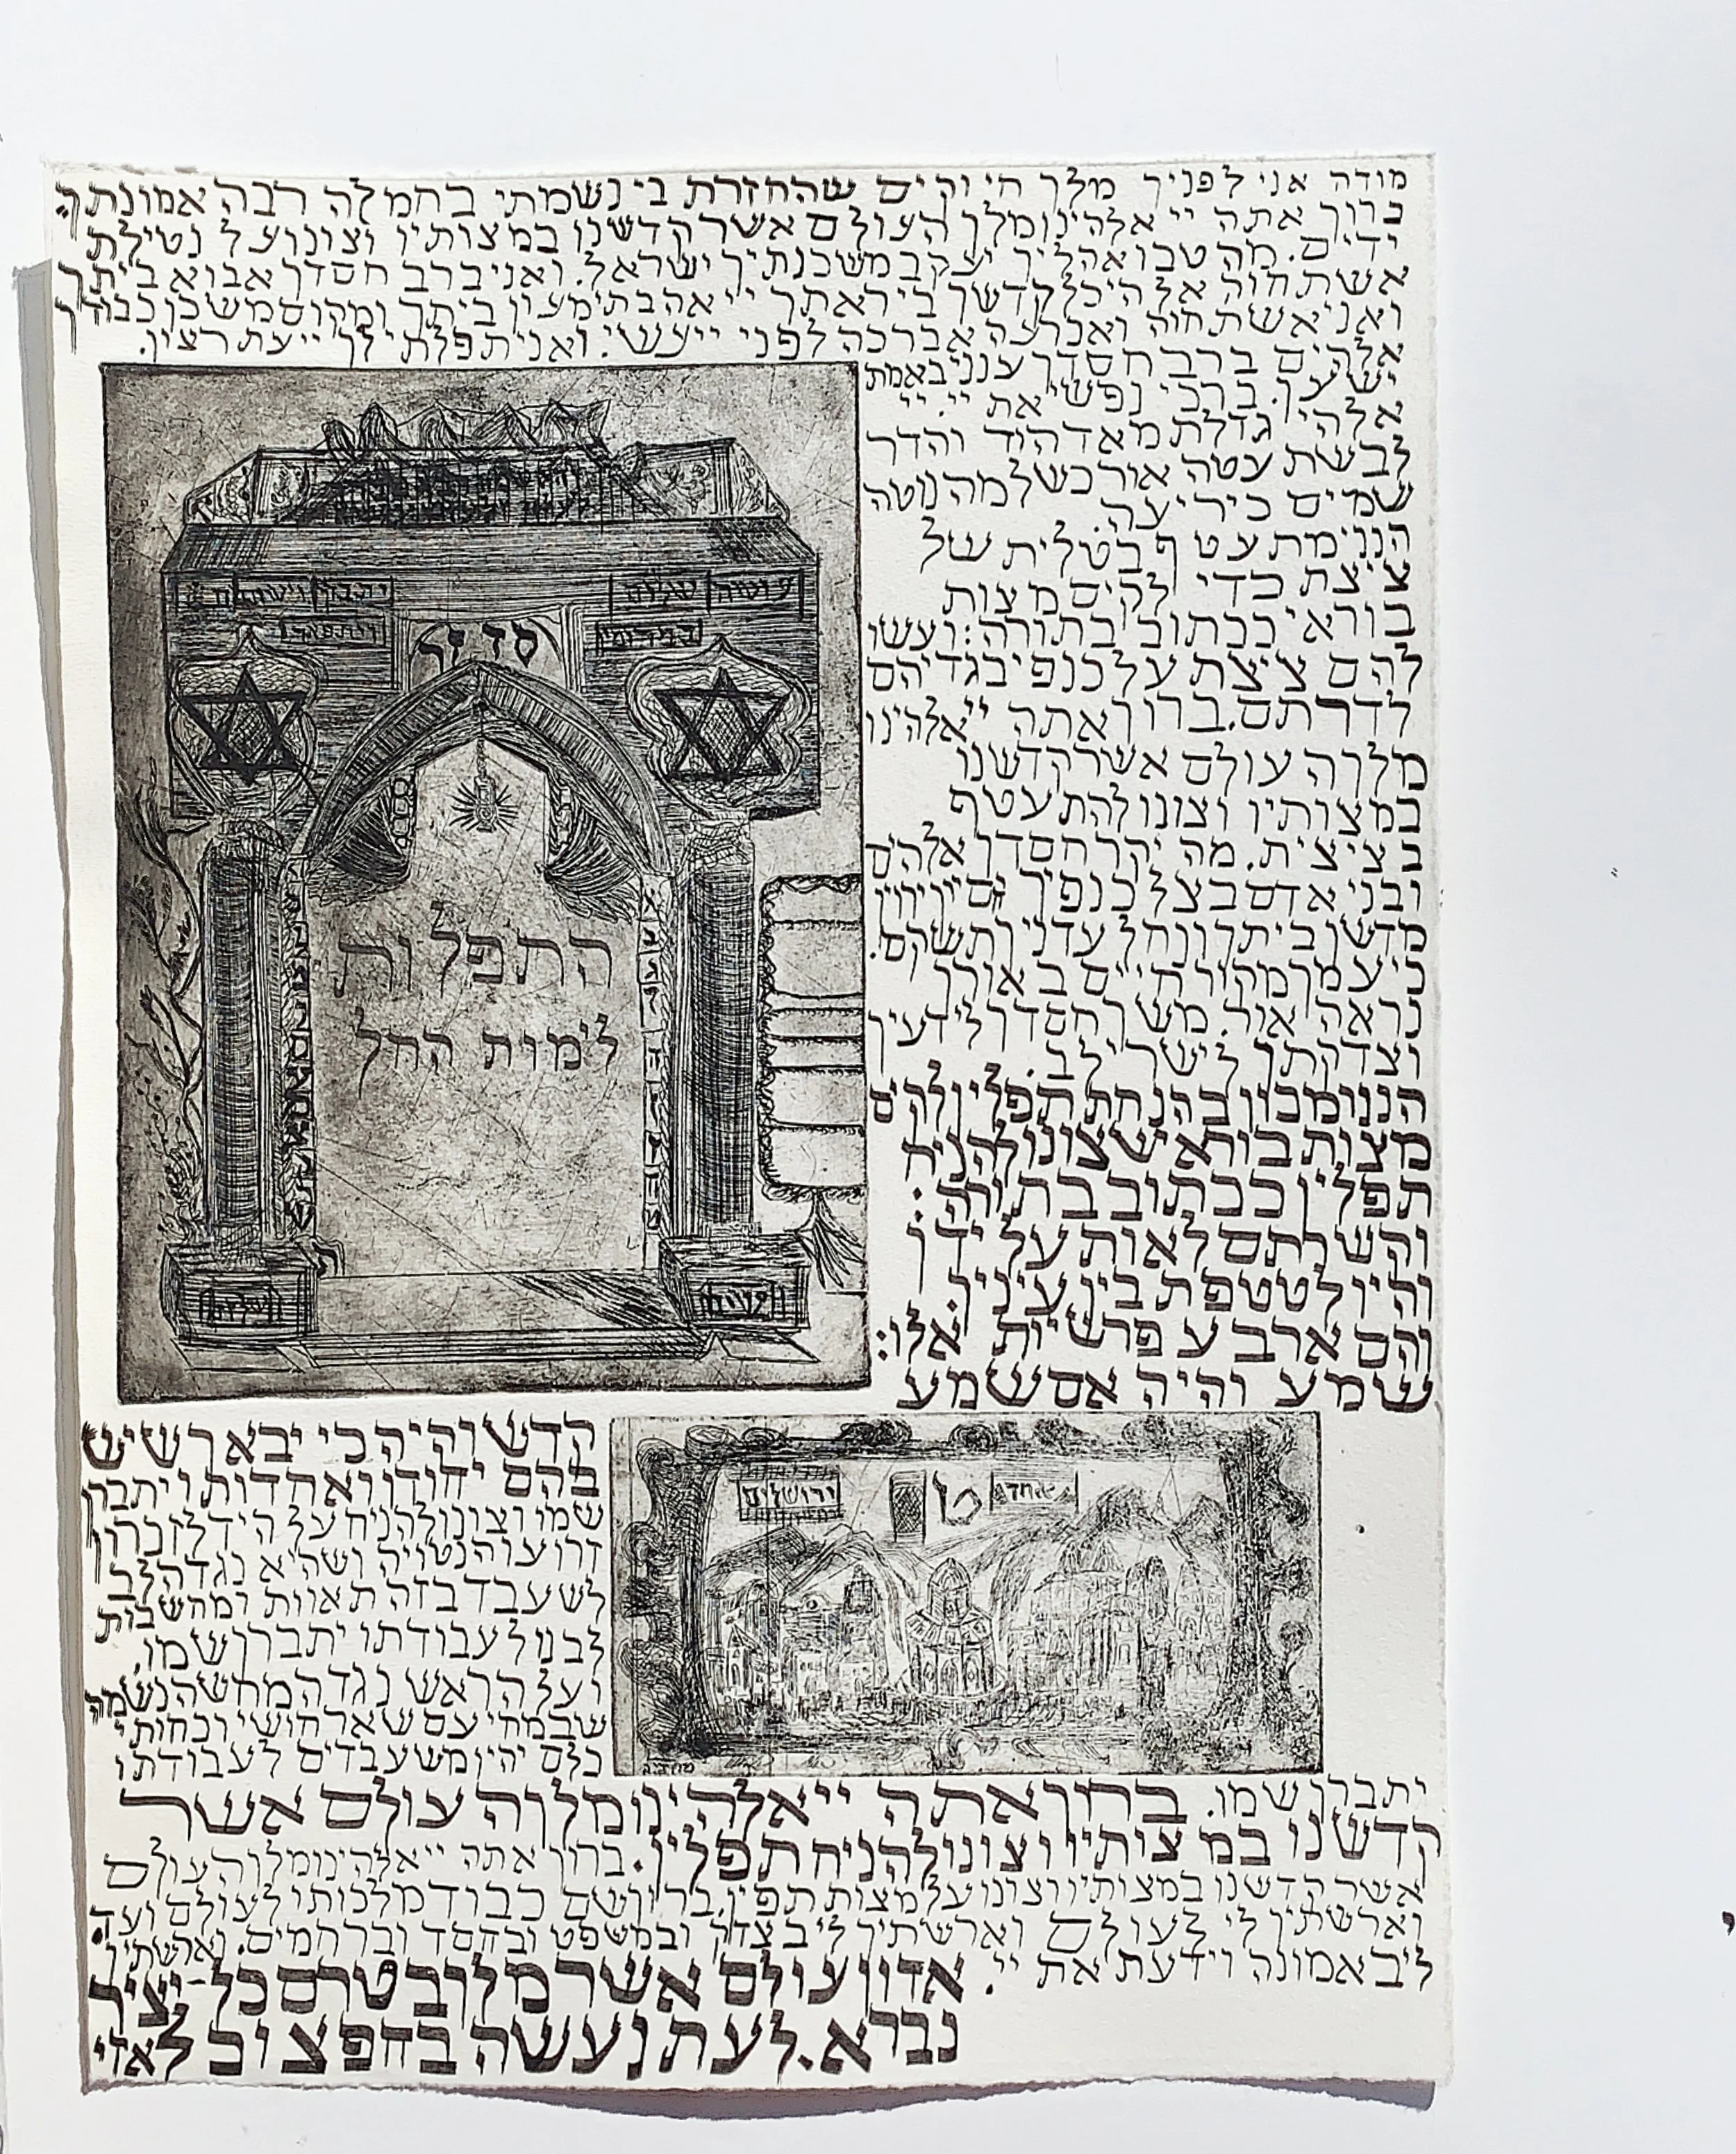 מודה אני לפניך מלך חי וקים שהחזרת בי נשמתי בחמלה רבה אמונתך
ברוך אתה יי אלהינו מלך העולם אשר קדשנו במצותיו וצונו על נטילת
ידים. מה טבו אהליך יעקב משכנתיך ישראל. ואני ברב חסדך אבוא ביתך
אשתחוה אל היכל קדשך ביראתך יי אהבתי מעון ביתך ומקום משכן כבודך
ואני אשתחוה ואכרעה אברכה לפני יי עשי. ואני תפלתי לך יי עת רצון.
אלהים ברב חסדך ענני באמת
ישעך. ברכי נפשי את יי. יי
אלהי גדלת מאד הוד והדר
לבשת עטה אור כשלמה נוטה
שמים כיריעה.
הנני מתעטף בטלית של
ציצת כדי לקים מצות
בוראי ככתוב בתורה: ועשו
להם ציצת על כנפי בגדיהם
לדרתם. ברוך אתה יי אלהינו
מלך העולם אשר קדשנו
במצותיו וצונו להתעטף
בציצית. מה יקר חסדך אלהים
ובני אדם בצל כנפיך יחסיון ירוין
מדשן ביתך ונחל עדניך תשקם.
כי עמך מקור חיים באורך
נראה אור. משך חסדך לידעיך
וצדקתך לישרי לב.
הנני מכוון בהנחת תפלין לקים
מצות בוראי שצונו להניח
תפלין ככתוב בתורה:
וקשרתם לאות על ידך
והיו לטטפת בין עיניך.
והם ארבע פרשיות אלו:
שמע והיה אם שמע
סדור
עושה שלום
במרומיו
יתברך וישתבח
ויתפאר
התפלות
לימות החל
קדש והיה כי יבאך שיש
בהם יחודו ואחדותו יתברך
שמו וצונו להניח על היד לזכרון
זרועו הנטויה ושהיא נגד הלב
לשעבד בזה תאוות ומחשבות
לבנו לעבודתו יתברך שמו.
ועל הראש נגד המח שהנשמה
שבמחי עם שאר חושי וכחותי
כלם יהיו משעבדים לעבודתו
ירושלים
יתברך שמו. ברוך אתה יי אלהינו מלך העולם אשר
קדשנו במצותיו וצונו להניח תפלין. ברוך אתה יי אלהינו מלך העולם
אשר קדשנו במצותיו וצונו על מצות תפלין. ברוך שם כבוד מלכותו לעולם ועד.
וארשתיך לי לעולם וארשתיך לי בצדק ובמשפט ובחסד וברחמים. וארשתיך
לי באמונה וידעת את יי. אדון עולם אשר מלך בטרם כל-יציר
נברא. לעת נעשה בחפצו כל אזי